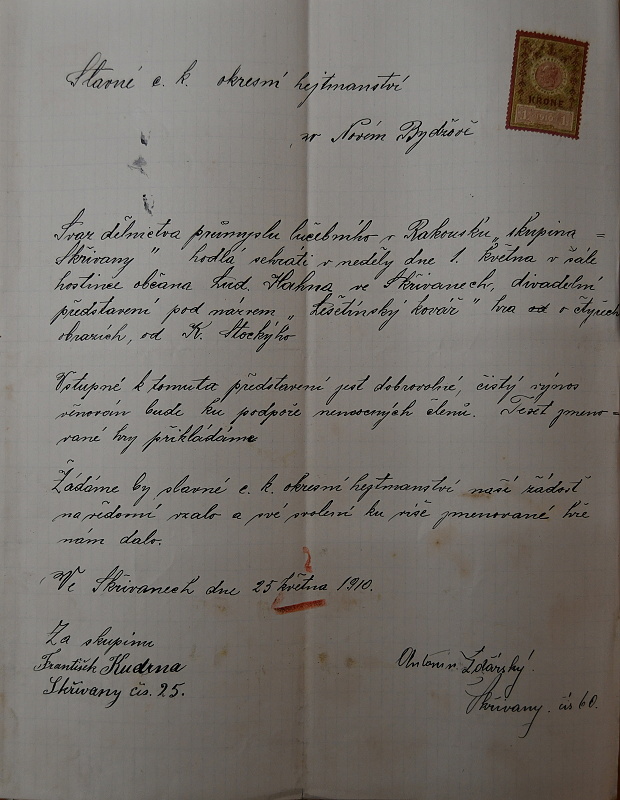 Slavné c. k. okresní hejtmanství
KRONE
1 1
v Novém Bydžově
Svaz dělnictva průmyslu lučebního v Rakousku „skupina=
Skřivany" hodlá sehráti v neděly dne 1. května v sále
hostince občana Lud. Hahna ve Skřivanech, divadelní
představení pod názvem „Lešetínský kovář" hra od o čtyřech
obrazích, od K. Stockýho
Vstupné k tomuta představení jest dobrovolné, čistý výnos
věnován bude ku podpoře nemocných členů. Text jmeno=
vané hry přikládáme
Žádáme by slavné c. k. okresní hejtmanství naší žádost
na vědomí vzalo a své svolení ku výše jmenované hře
nám dalo.
Ve Skřivanech dne 25 května 1910.
?
Za skupinu
František Kudrna
Skřivany čís. 25.
Antonín Žďárský.
Skřivany. čís 60.